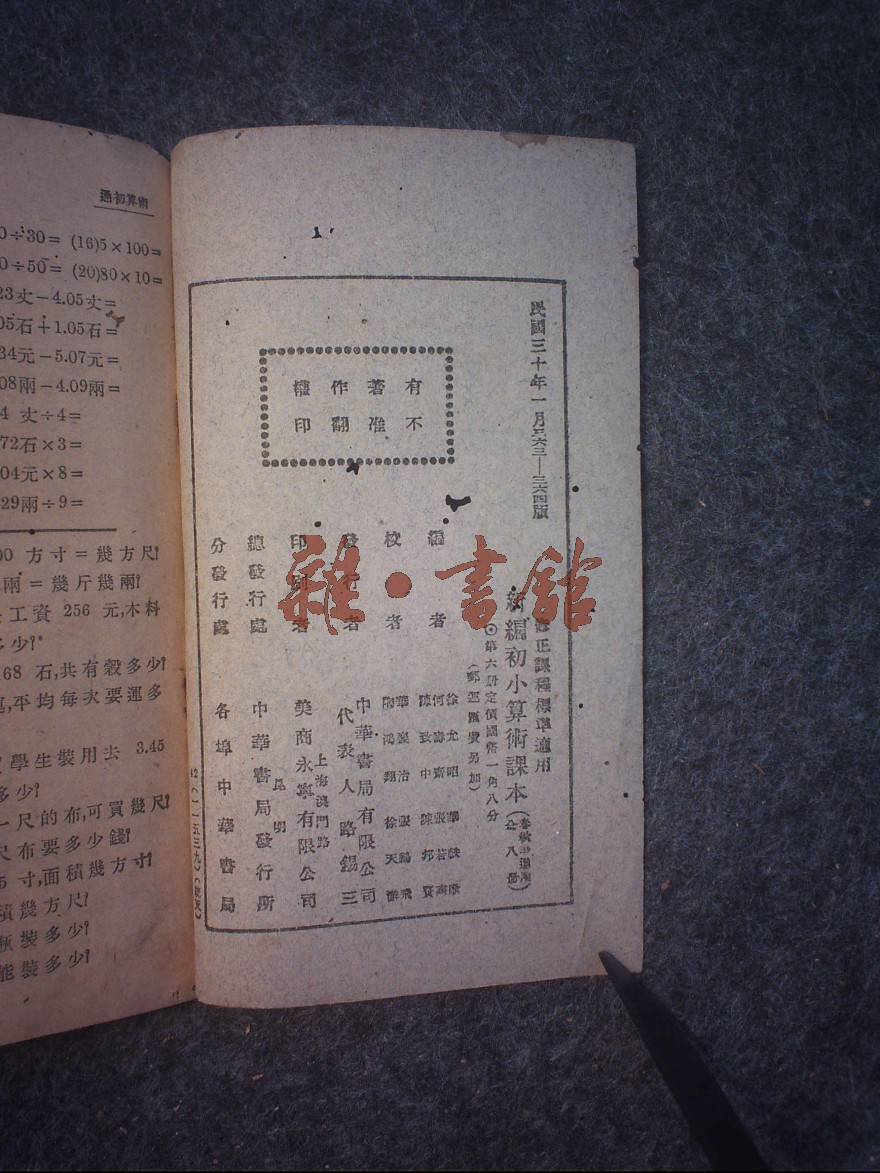 民國三十年一月三六三—三六四版
有著作權
不准翻印
修正課程標準適用
新編初小算術課本
(春秋季通用 全八冊)
◎第六册定價國幣一角八分
(郵運匯費另加)
編者
校者
發行者
中華書局有限公司
代表人路錫三
印刷者
上海澳門路
美商永寧有限公司
總發行處
昆明
中華書局發行所
分發行處
各埠中華書局
雜·書館
算初通
0÷30= (16)5×100=
0÷50= (20)80×10=
23丈−4.05丈=
05石+1.05石=
34元−5.07元=
08兩−4.09兩=
4 丈÷4=
72石×3=
04元×8=
29兩÷9=
00 方寸=幾方尺?
兩=幾斤幾兩?
工資 256 元,木料
多少?
68 石,共有穀多少?
,平均每次要運多
學生裝用去 3.45
多少?
一尺的布,可買幾尺?
尺布要多少錢?
5寸,面積幾方寸?
積幾方尺?
瓶裝多少?
能裝多少?